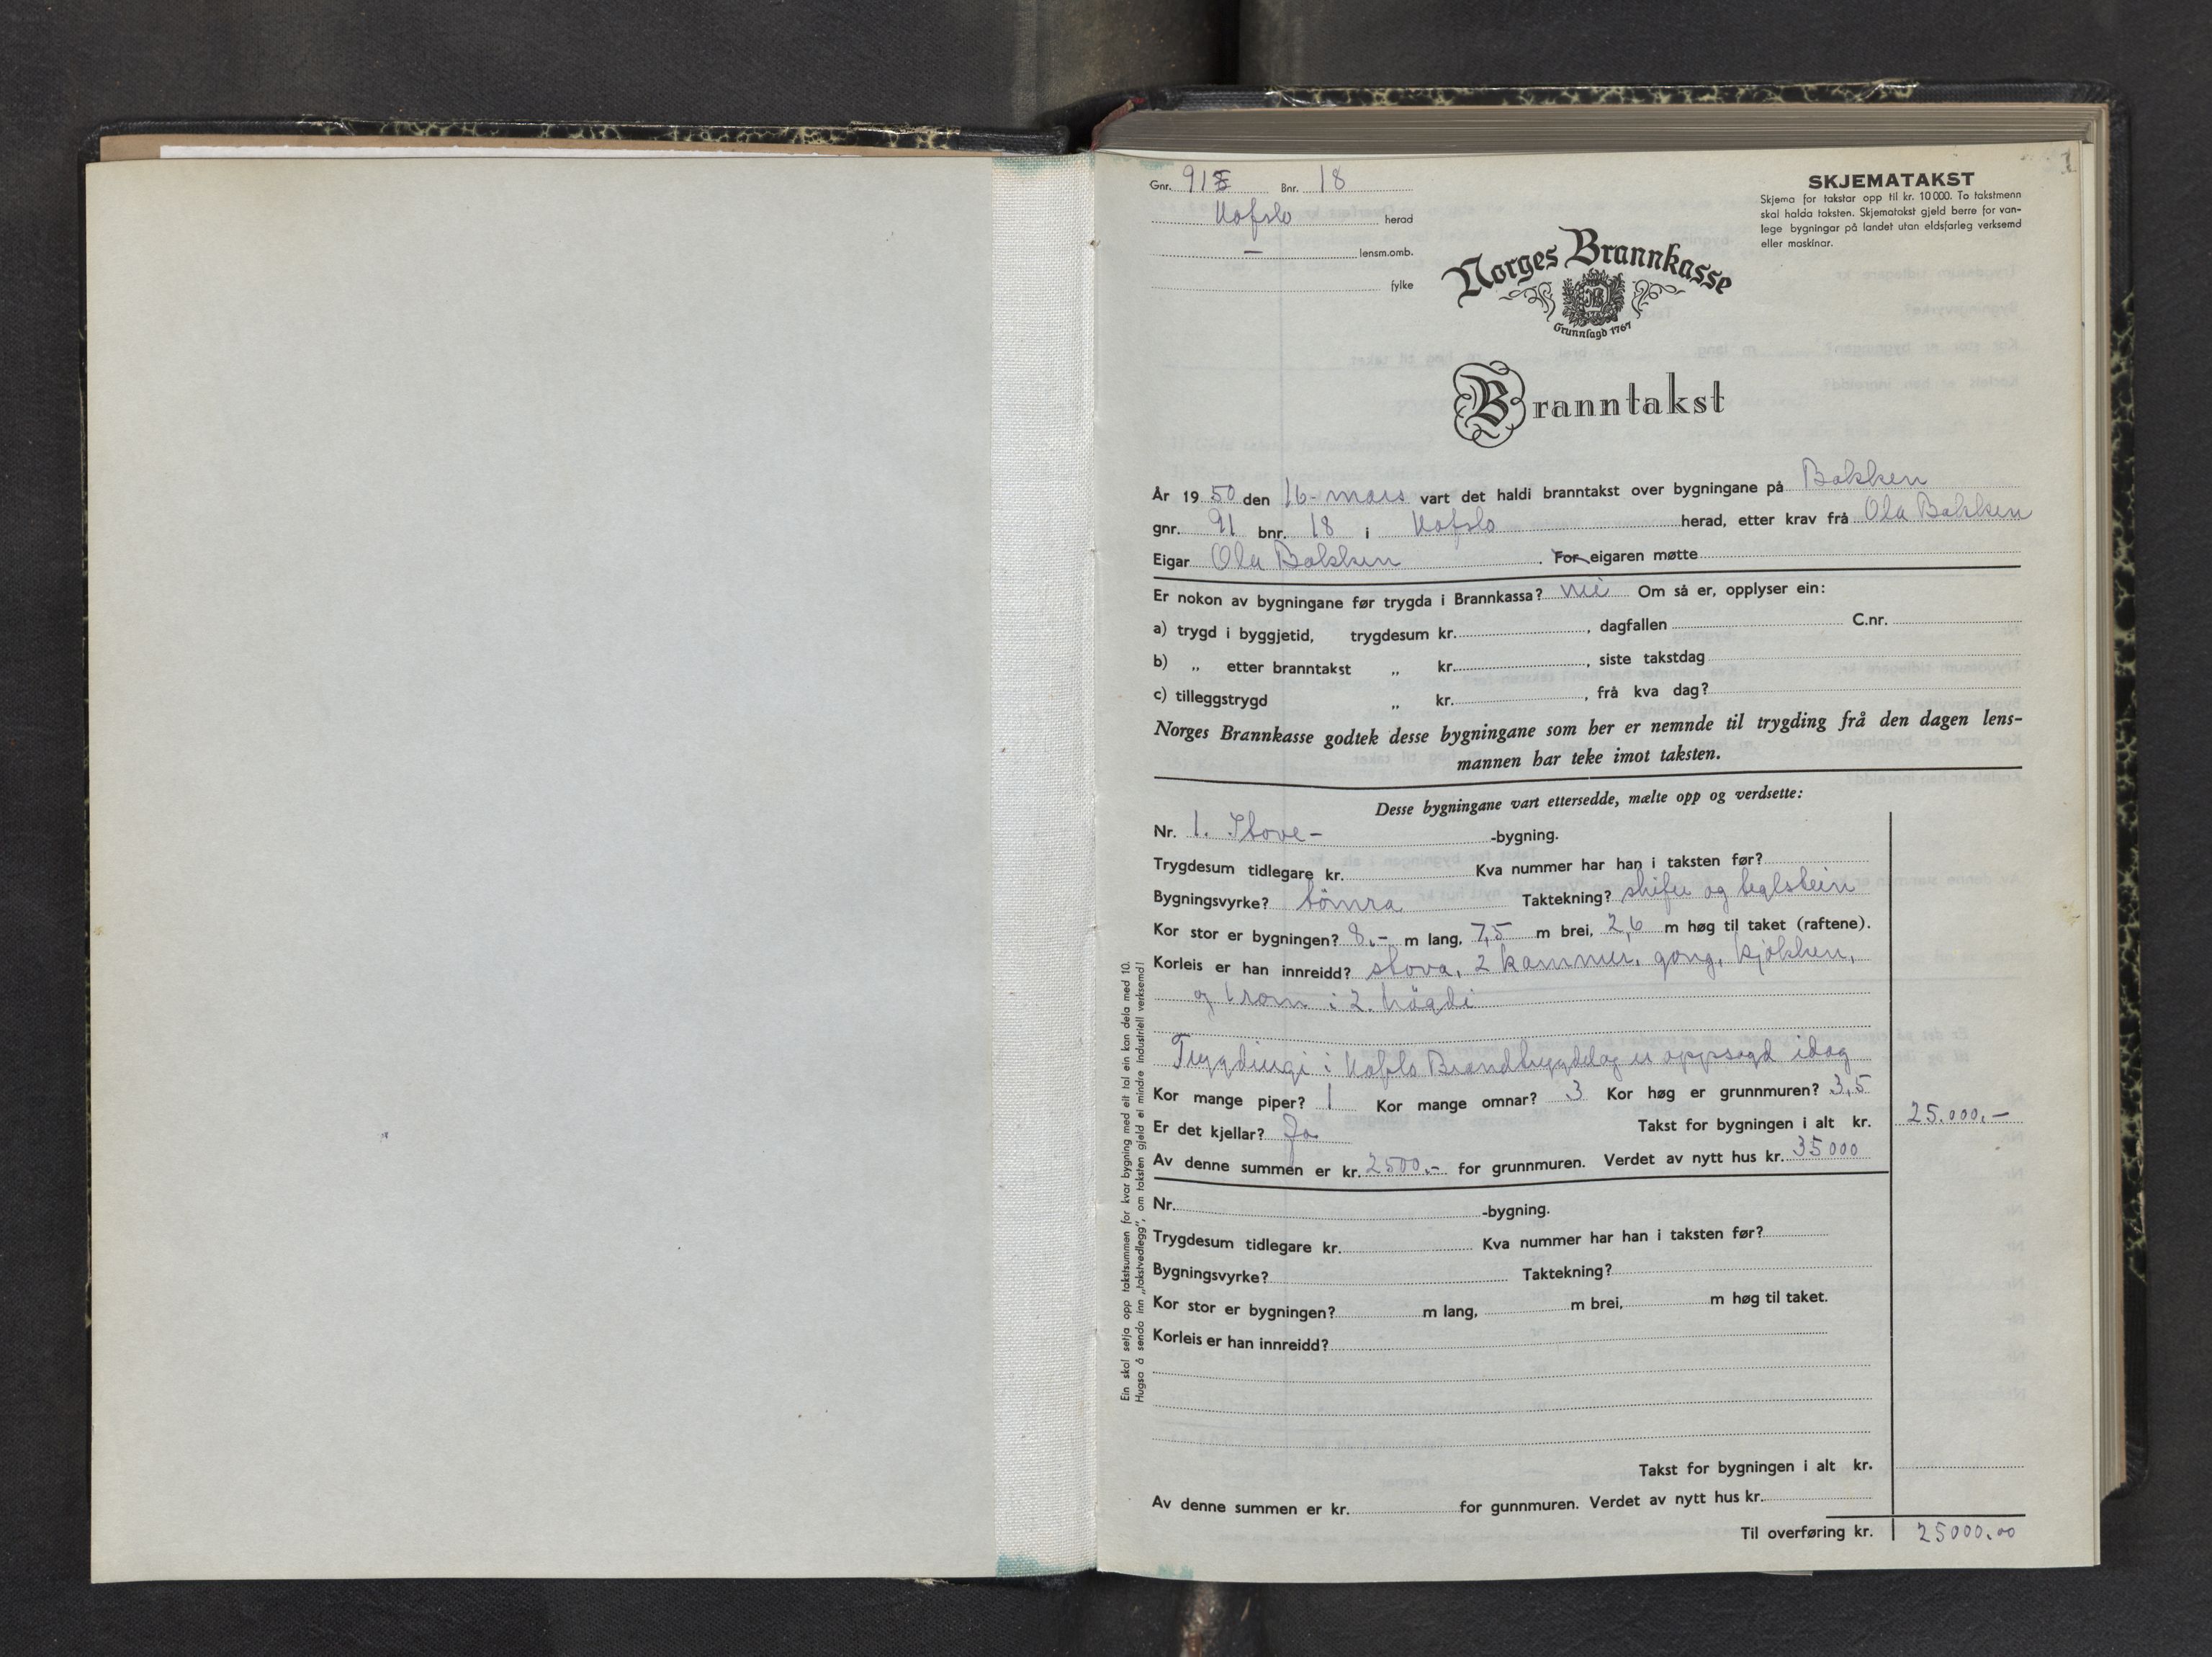 1
Gnr. 91 Bnr. 18
Hafslo herad
— lensm.omb.
fylke
SKJEMATAKST
Skjema for takstar opp til kr. 10 000. To takstmenn
skal halda taksten. Skjematakst gjeld berre for van-
lege bygningar på landet utan eldsfarleg verksemd
eller maskinar.
Norges Brannkasse
Grunnlagd 1767
Branntakst
År 1950 den 16. mars vart det haldi branntakst over bygningane på Bakken
gnr. 91 bnr. 18 i Hafslo herad, etter krav frå Ola Bakken
Eigar Ola Bakken . For eigaren møtte
Er nokon av bygningane før trygda i Brannkassa? nei Om så er, opplyser ein:
a) trygd i byggjetid, trygdesum kr. , dagfallen C.nr.
b) „ etter branntakst „ kr. , siste takstdag
c) tilleggstrygd „ kr. , frå kva dag?
Norges Brannkasse godtek desse bygningane som her er nemnde til trygding frå den dagen lens-
mannen har teke imot taksten.
Desse bygningane vart ettersedde, mælte opp og verdsette:
Nr. 1. Stove- -bygning.
Trygdesum tidlegare kr. Kva nummer har han i taksten før?
Bygningsvyrke? tömra Taktekning? skifer og teglstein
Kor stor er bygningen? 8.- m lang, 7,5 m brei, 2,6 m høg til taket (raftene).
Korleis er han innreidd? stova, 2 kammer, gang, kjökken,
og 1 rom i 2. högdi
Trygdingi i Hafslo Brandtrygdelag er oppsagd idag
Kor mange piper? 1 Kor mange omnar? 3 Kor høg er grunnmuren? 3,5
Er det kjellar? Ja Takst for bygningen i alt kr. 25.000,-
Av denne summen er kr. 2500.- for grunnmuren. Verdet av nytt hus kr. 35000
Nr. -bygning.
Trygdesum tidlegare kr. Kva nummer har han i taksten før?
Bygningsvyrke? Taktekning?
Kor stor er bygningen? m lang, m brei, m høg til taket.
Korleis er han innreidd?
Takst for bygningen i alt kr.
Av denne summen er kr. for gunnmuren. Verdet av nytt hus kr.
Til overføring kr. 25000.00
Ein skal setja opp takstsummen for kvar bygning med eit tal ein kan dela med 10.
Hugsa å senda inn „takstvedlegg", om taksten gjeld ei mindre industriell verksemd!